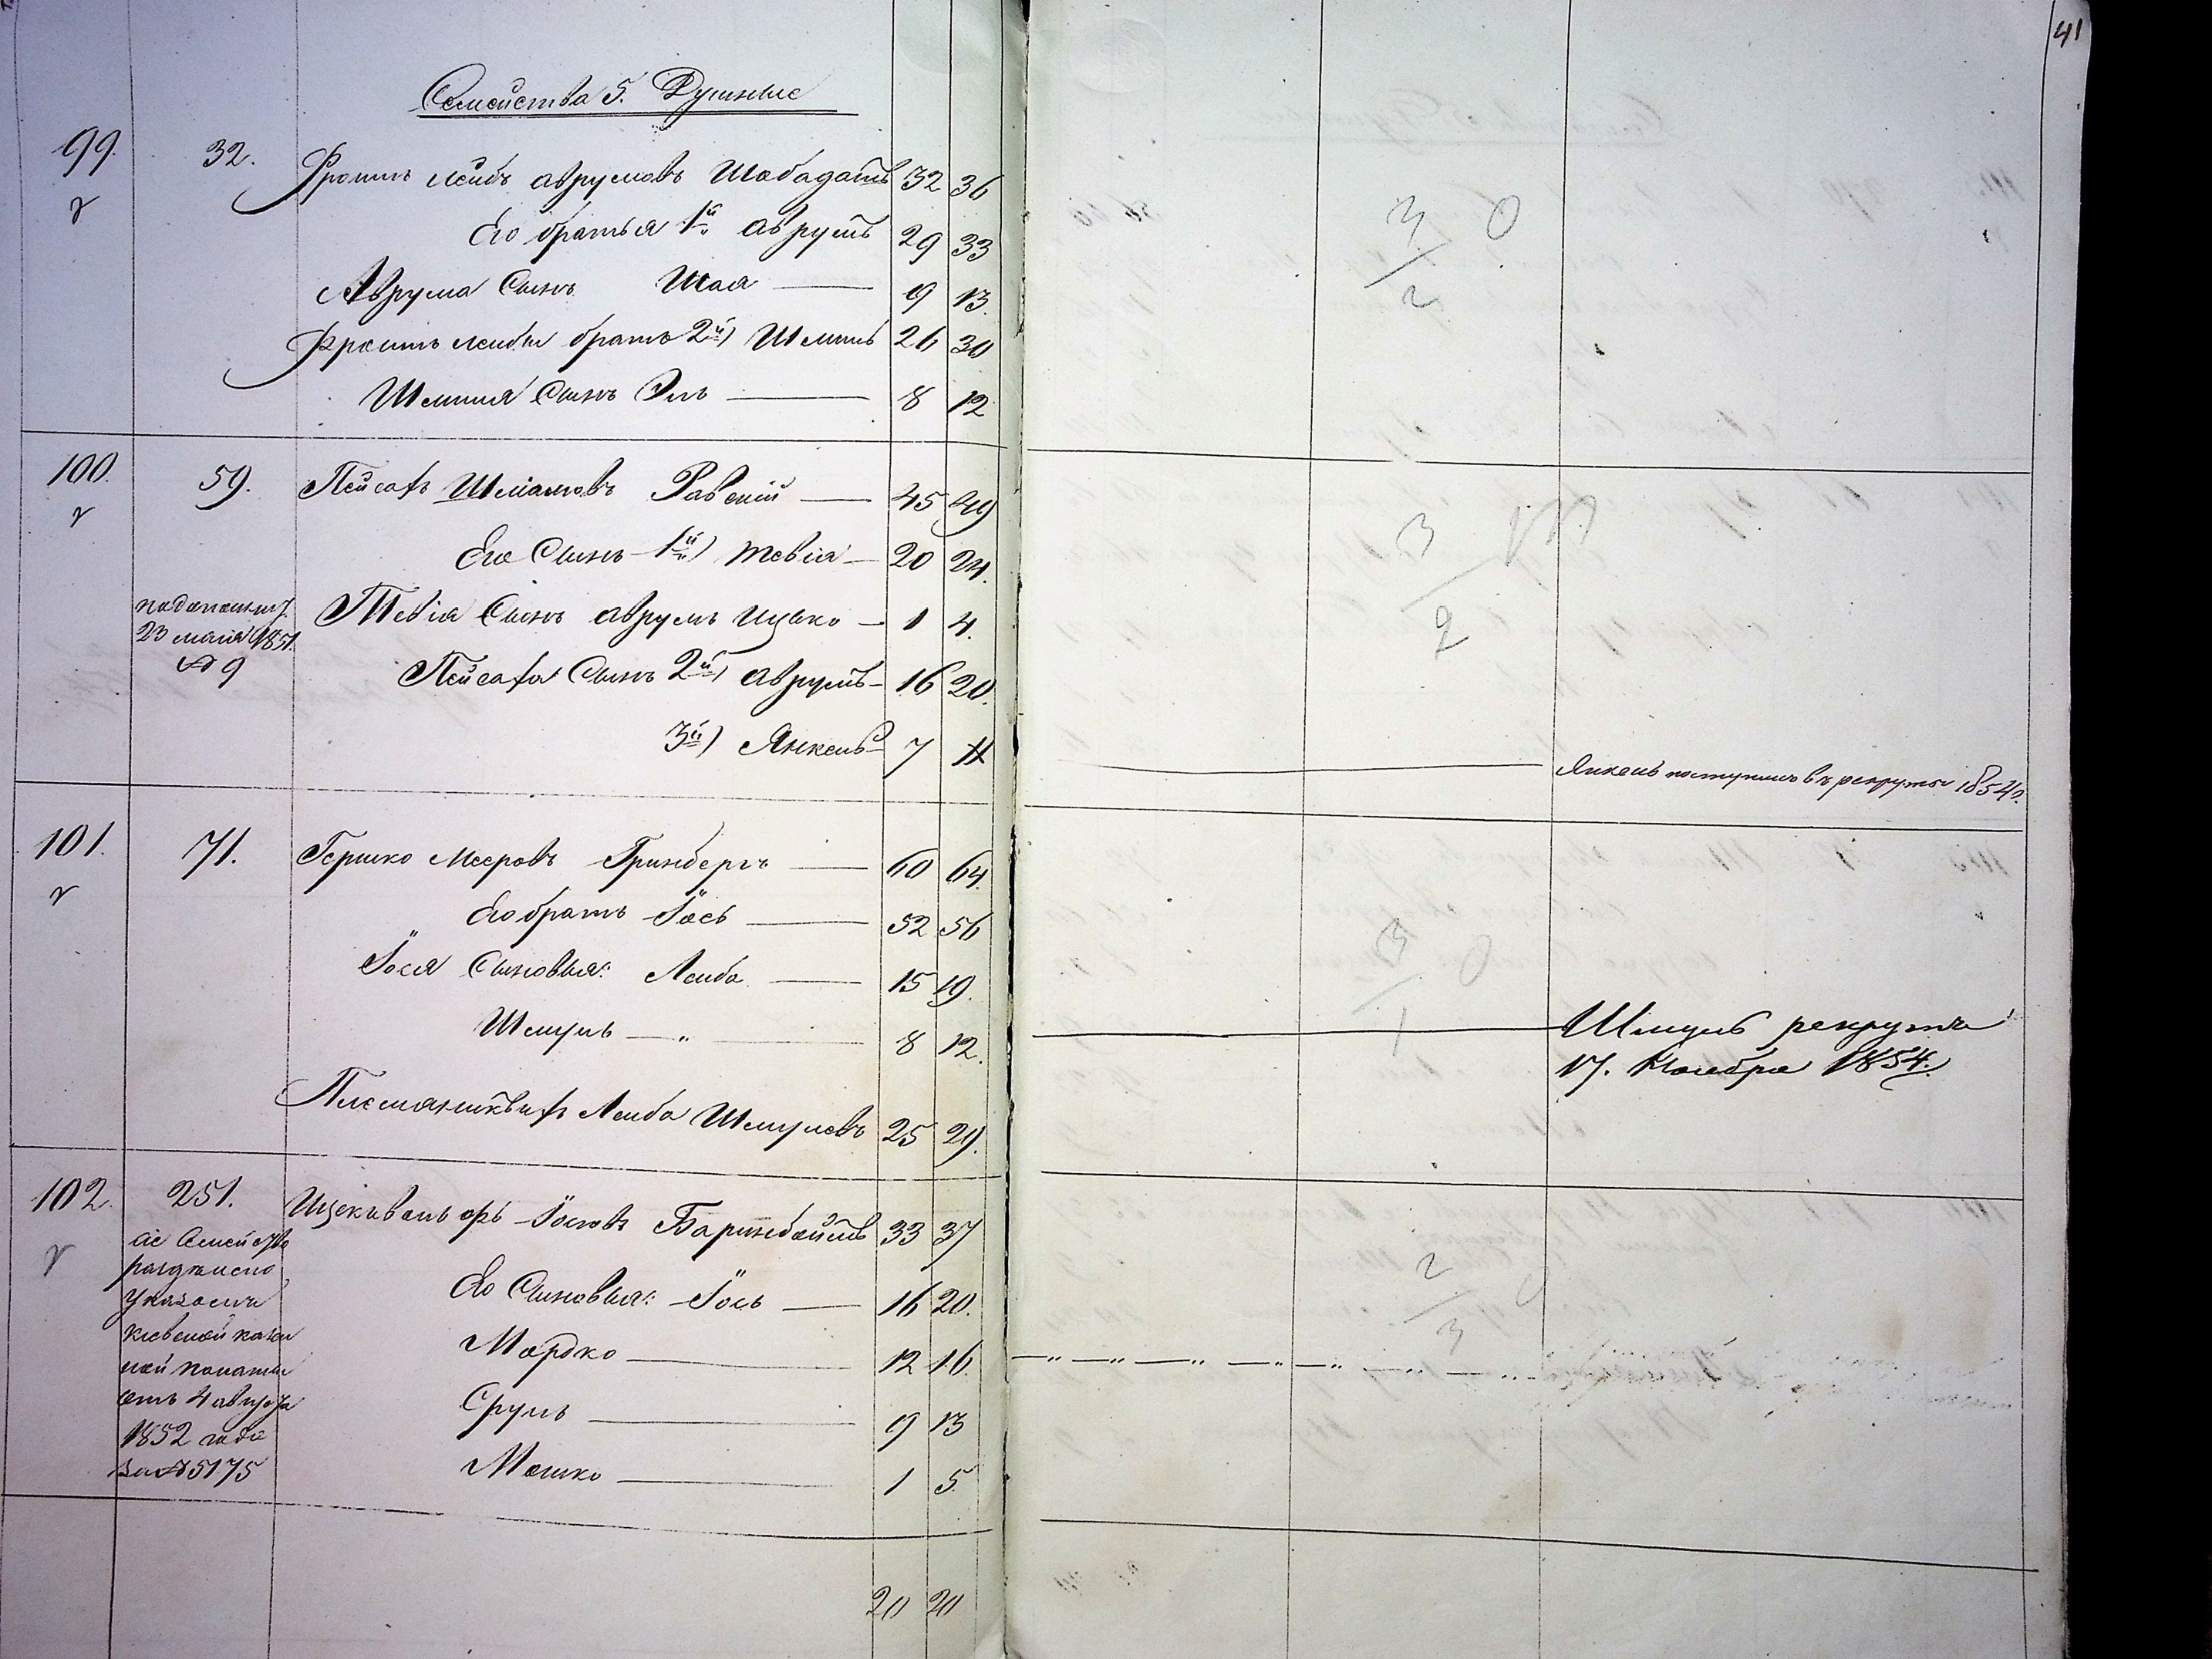 41
Семейства 5. Душные
99. 32. Фроимъ Лейбъ Аврумовъ Шабадашъ 32 36
Его братья 1й Аврумъ 29 33
Аврума Сынъ Шая 9 13.
Фроимъ Лейбы братъ 2й) Шлиомъ 26 30
Сынъ Эль 8 12
100. 59. Пейсахъ Шліомовъ Равскій 45 49
Его Сынъ 1й) Тевія 20 24.
Тевія Сынъ Аврумъ Ицько 1 4.
23 мая 1851.
№ 9
Пейсаха Сынъ 2й) Аврумъ 16 20.
3й) Янкель 7 11
Янкель поступилъ в рекруты 1854 г.
101. 71. Гершко Мееровъ Гринбергъ 60 64.
Его братъ Іось 52 56
Іося Сыновья: Лейба 15 19.
Шмуль — „ 8 12.
Шмуль рекрутъ
17. Ноября 1854.
Племянникъ ихъ Лейба Шмулевъ 25 29.
102. 251. 33 37
сіе Семейство
Его Сыновья: Іось 16 20.
указомъ
Кіевской казен
ной палаты
Мордко 12 16.
отъ 4 августа
Сруль 9 13
1852 года
за № 5175
Мошко 1 5.
20 20
3 0
2
3
2
3 0
1
2
3